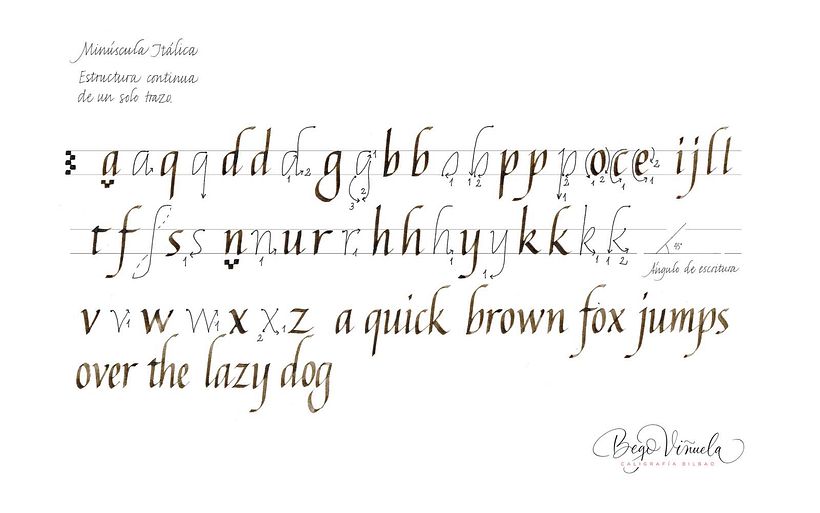 Minúscula Itálica
Estructura continua
de un solo trazo.
a a q q d d d g g b b b b p p p o c e i j l l
t f f s s n n u r r h h h y y k k k k
45°
Ángulo de escritura
v v w w x x z a quick brown fox jumps
over the lazy dog
Bego Viñuela
CALIGRAFÍA BILBAO